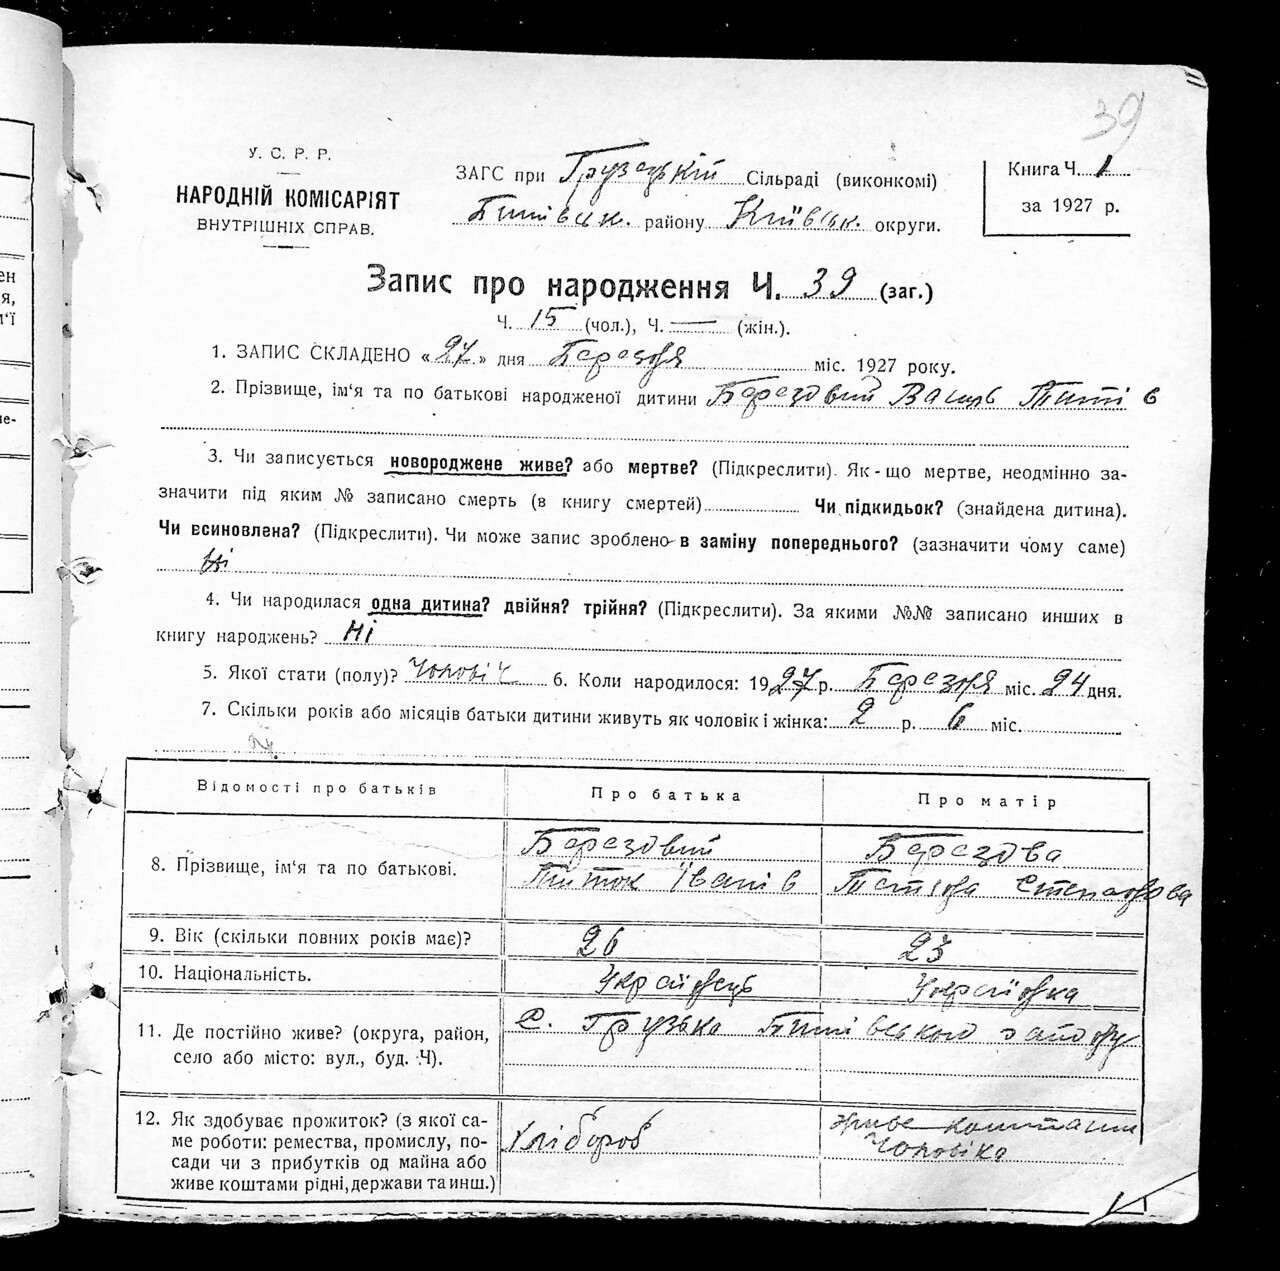 39
У. С. Р. Р.
НАРОДНІЙ КОМІСАРІЯТ
ВНУТРІШНІХ СПРАВ.
ЗАГС при Грузецькій Сільраді (виконкомі)
району Київськ. округи.
Книга Ч. 1
за 1927 р.
Запис про народження Ч. 39 (заг.)
Ч. 15 (чол.), Ч. — (жін.).
1. ЗАПИС СКЛАДЕНО «27» дня Березня міс. 1927 року.
2. Прізвище, ім'я та по батькові народженої дитини Березовий Василь Титів
3. Чи записується новороджене живе? або мертве? (Підкреслити). Як-що мертве, неодмінно за-
значити під яким № записано смерть (в книгу смертей) Чи підкидьок? (знайдена дитина).
Чи всиновлена? (Підкреслити). Чи може запис зроблено в заміну попереднього? (зазначити чому саме)
Ні
4. Чи народилася одна дитина? двійня? трійня? (Підкреслити). За якими №№ записано инших в
книгу народжень? Ні
5. Якої стати (полу)? Чоловіч. 6. Коли народилося: 1927 р. Березня міс. 24 дня.
7. Скільки років або місяців батьки дитини живуть як чоловік і жінка: 2 р. 6 міс.
Відомості про батьків Про батька Про матір
8. Прізвище, ім'я та по батькові.
Березовий
Іванів
Березова
Тетяна Степанова
9. Вік (скільки повних років має)? 26 23
10. Національність. Українець Українка
11. Де постійно живе? (округа, район,
село або місто: вул., буд. Ч).
с. Грузька
12. Як здобуває прожиток? (з якої са-
ме роботи: ремества, промислу, по-
сади чи з прибутків од майна або
живе коштами рідні, держави та инш.)
Хлібороб
живе коштами
Чоловіка